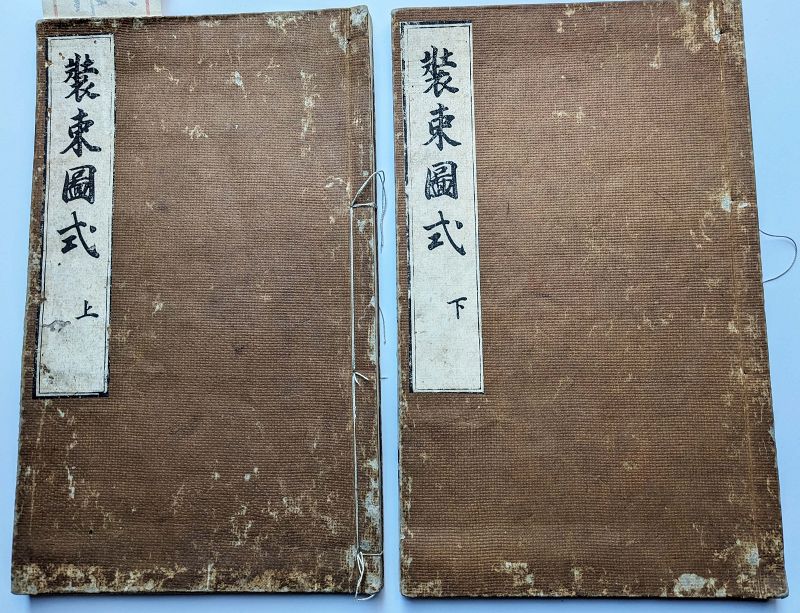 裝束圖式 上
裝束圖式 下